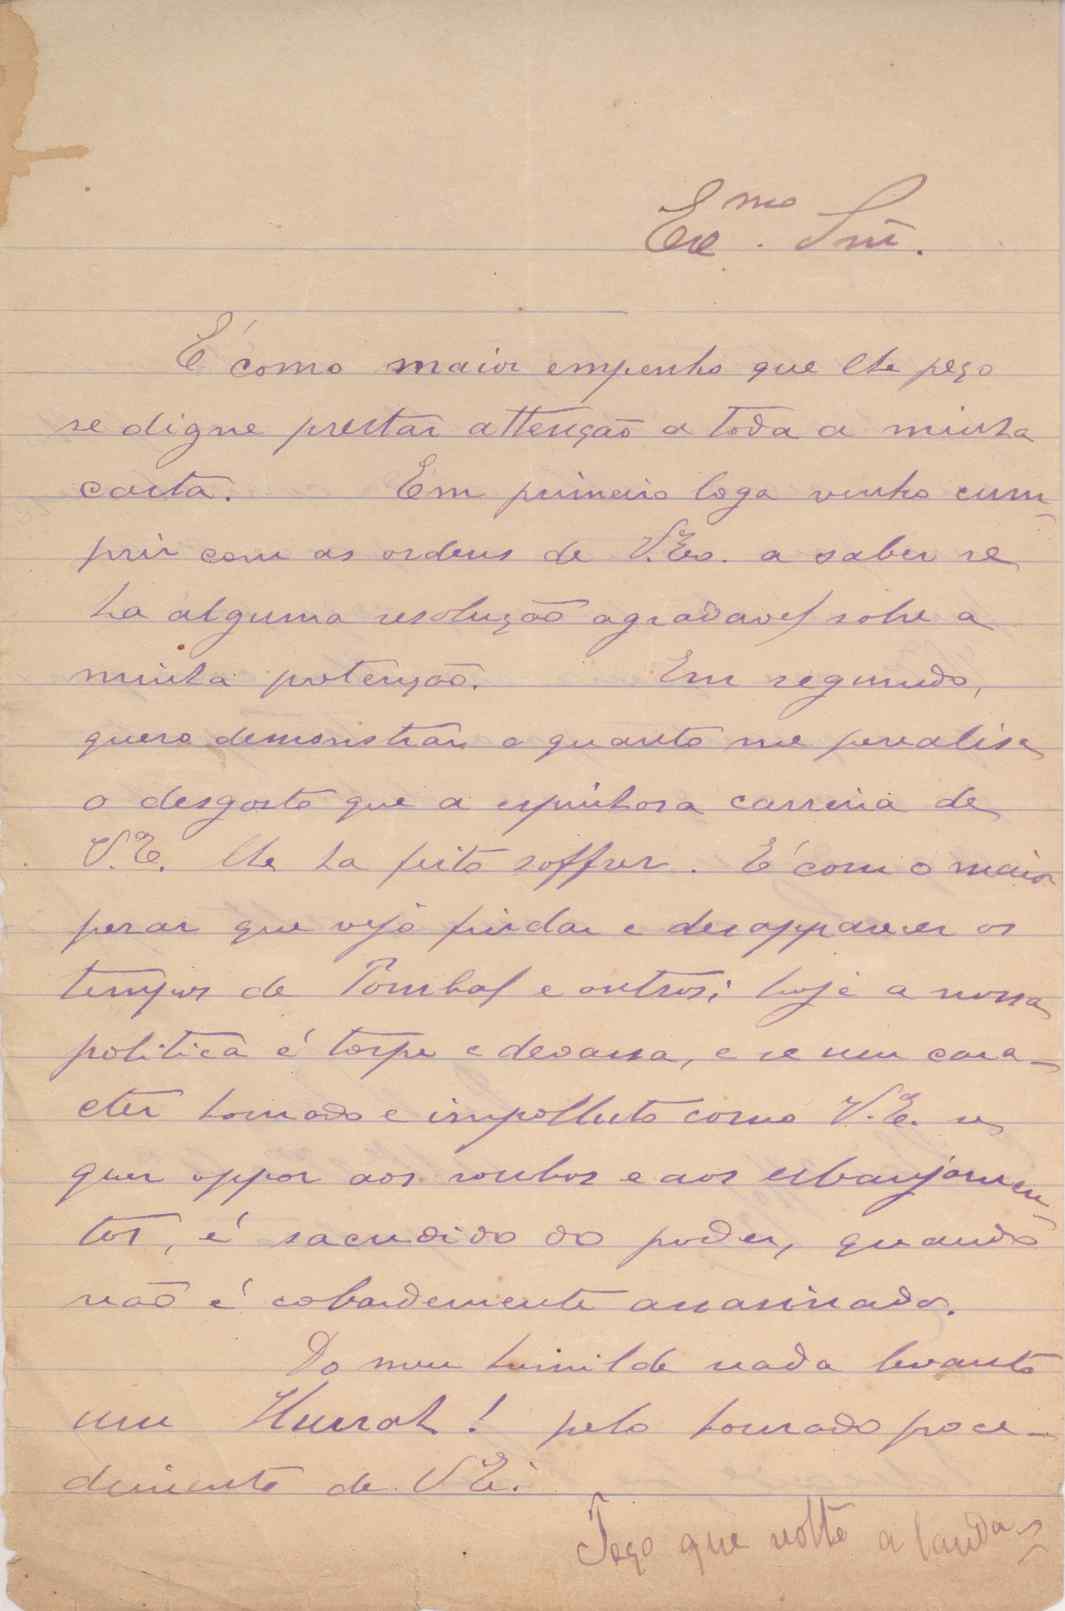 Exmo. Snr.
É como maior empenho que lhe peço
se digne prestar attenção a toda a minha
carta. Em primeiro loga venho cum-
prir com as ordens de V.Exa. a saber se
ha alguma resolução agradavel sobre a
minha pretenção. Em segundo,
quero demonstrar o quanto me penalisa
o desgosto que a espinhosa carreira de
V.E. lhe ha feito soffrer. É com o maior
pesar que vejo findar e desapparecer os
tempos de Pombal e outros; hoje a nossa
politica é torpe e devassa, e se um cara-
cter honrado e impolluto como V.E. se
quer oppor aos roubos e aos esbanjamen-
tos, é sacudido do poder, quando
não é cobardemente assassinado.
Do meu humilde nada levanto
um Hurrah! pelo honrado proce-
dimento de V.E.
Peço que volte a lauda